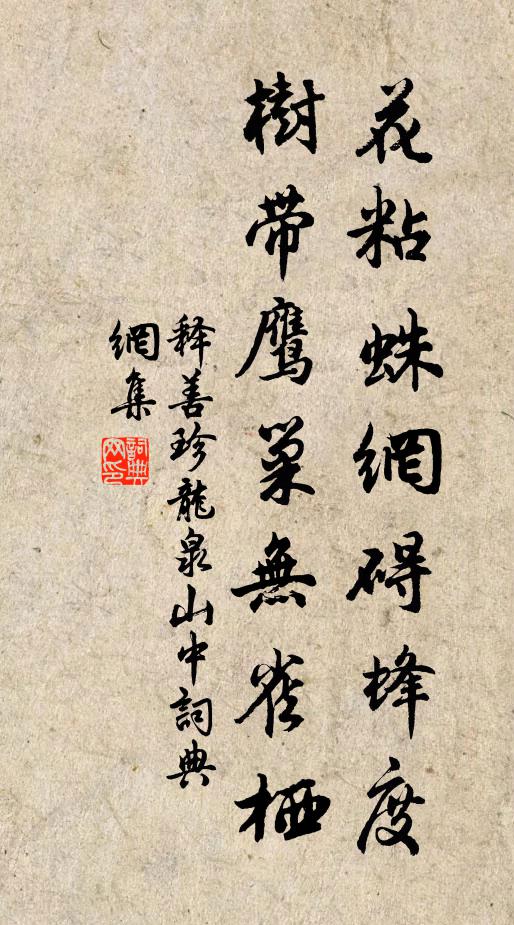 花粘蛛網碍蜂度
樹帶鷹巢無雀栖
释善珍龍泉山中詞典
網集
詞典
网印